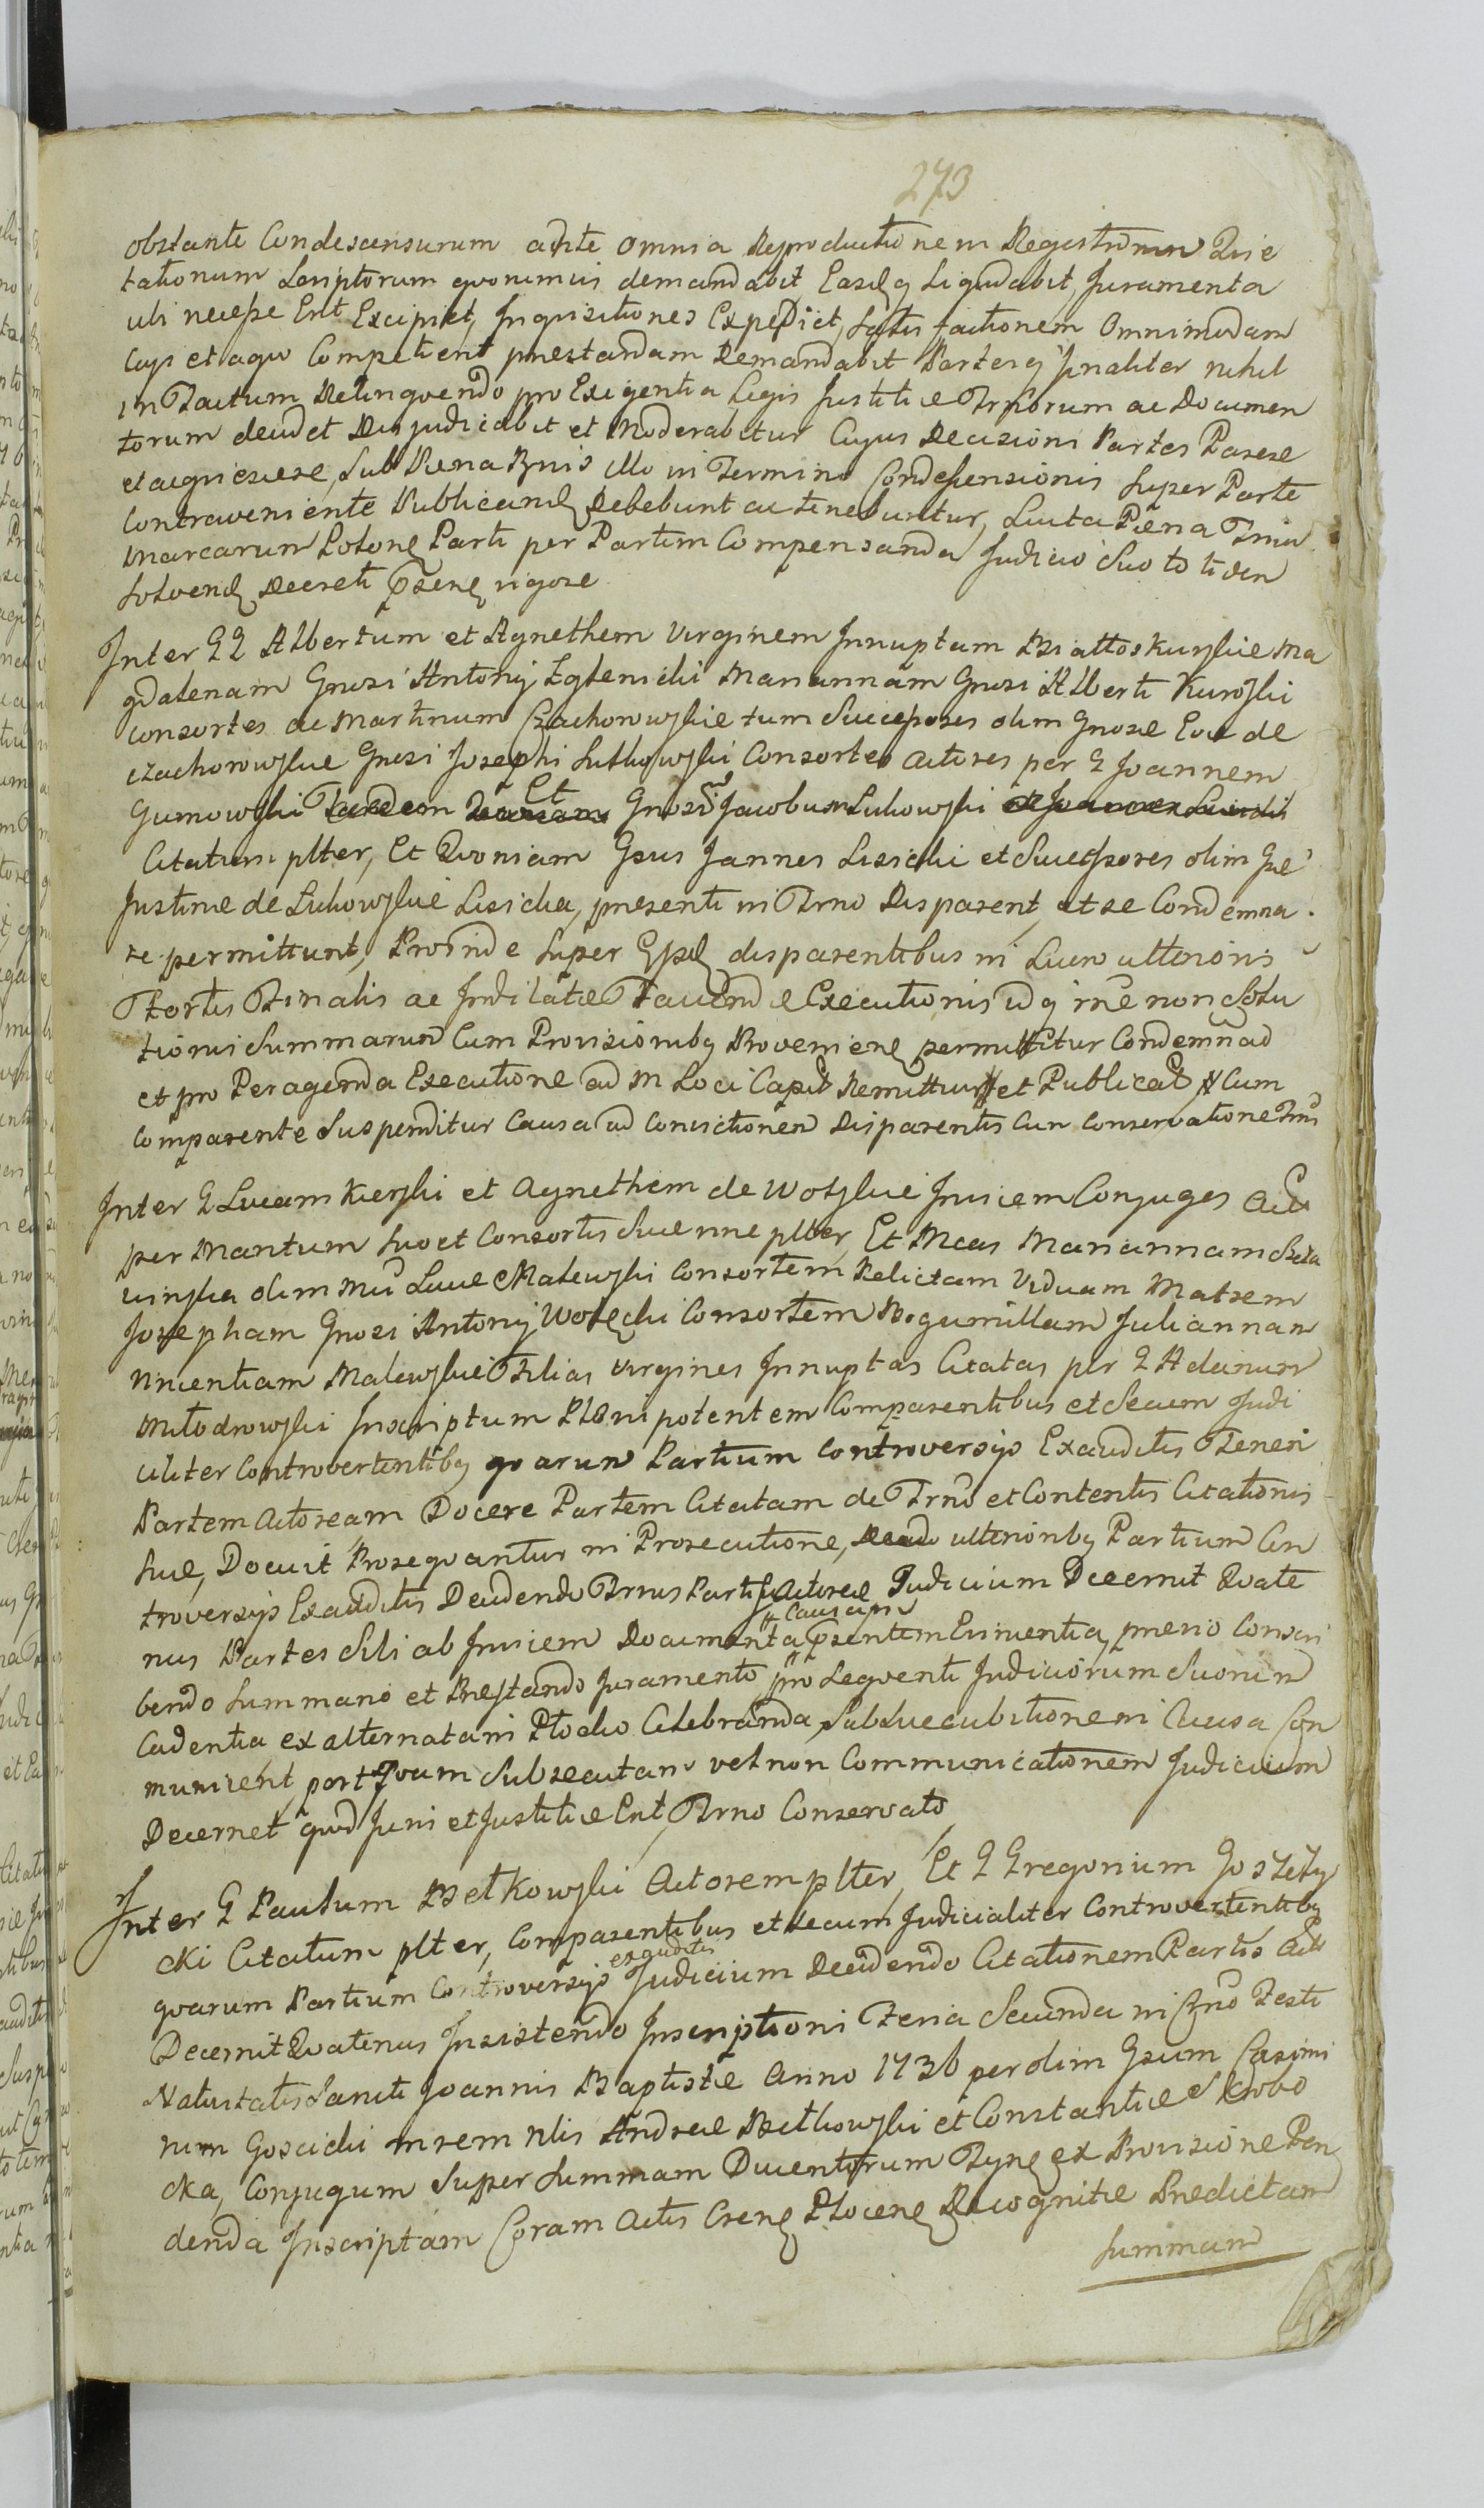 273
obstante Condescensurum ad ante omnia Reproductionem Registrorum Quie
tationum Scriptorum quorumvis demandabit, Easdq Liquidabit, Juramenta
ubi necesse Erit Excipiet, Inquisitiones Expediet, satisfactionem Omnimodam
Cujs et a quo Competierit prestandam Demandabit Partesq finaliter nihil
in Factum Relinquendo pro Exigentia Legis Justitiæ Trsorum ac Documen
torum decidet Disjudicabit et Moderabitur Cujus Decisioni Partes Parere
et acquiescere, Sub Pæna Bnis illo in Termino Condescensionis super Parte
Contraveniente Publicand Debebunt ac tenebuntur, Lucta Pæna Trium
Marcarum Polon Parti per Partem Compensanda Judicio Suo totidem
solvend Decreti psen vigore
Inter GG Albertum et Agnethem Virginem Innuptam Białłoskurskie Ma
gdalenam Gnosi Antonij Zglenicki Mariannam Gnosi Alberti Kurowski
consortes ac Martinum Czachorowskie tum Successores olim Gnosæ Evæ de
Czachorowskie Gnosi Josephi Sutkowski Consortes Actores per G Joannem
Gumowski Et Gnosum Jacobum Lukowski
Citatum plter, Et Quoniam Gsus Joannes Lisicki et Successores olim Gæ
Justinæ de Lukowskie Lisicka, presenti in Trno Disparent, et se Condemna
re permittunt, Proinde super Gpsd disparentibus in Lucro ulterioris
Fortis Finalis ac Judicatæ Faciendæ Executionis idq rne non Solu
tionis Summarum Cum Provisionibq Provenien permittitur Condemnad
et pro Peragenda Executione ad m Loci Capit Remittitur et Publicat Cum
Comparente Suspenditur Causa ad Convictionem Disparentis Cum Conservatione Trni
Inter G Lucam Kierski et Agnethem de Wolskie Invicem Conjuges Act
per Maritum Suo et Consortis Suæ nne plter, Et Mcas Mariannam
olim Mci Lucæ Malewski Consortem Relictam Viduam Matrem
Josepham Gnosi Antonij Consortem Bogumillam Juliannam
Vincentiam Malewskie Filias Virgines Innuptas Citatas per G Adamum
Młodrowski Inscriptum Plenipotentem Comparentibus et Secum Judi
cialiter Controvertentibq quarum Partium Controversijs Exauditis Teneri
Partem Actoream Docere Partem Citatam de Trno et Contentis Citationis
suæ, Docuit Prosequantur in Prosecutione, ulterioribq Partium Con
troversijs Exauditis Decidendo Trnus Partis Actoreæ Judicium Decernit Quate
nus Partes Sibi ab Invicem Documenta Causam psentem Evinventia, previo Conscri
bendo Summario et Præstando Juramento pro Sequenti Judiciorum Suorum
Cadentia ex alternata in Płocko Celebranda, Sub Succubitione in Causa Com
municent, post Quam Subsecutam vel non Communicationem Judicium
Decernet quod Juri et Justitiæ Erit, Trno Conservato
Inter G Paulum Betkowski Actorem plter, Et G Gregorium Goszczy
cki Citatum plter, Comparentibus et Secum Judicialiter Controvertentibq
quarum Partium Controversijs exauditis Judicium Decidendo Citationem Partis Act
Decernit Quatenus Insistendo Inscriptioni Feria Secunda in Crno Festi
Nativitatis Sancti Joannis Baptistæ Anno 1736 per olim Gsum Casimi
rum Goscicki in rem Nlis Andreæ Betkowski et Constantiæ Skrobo
cka, Conjugum Super Summam Ducentorum Tyn ex Provisione Pen
denda Inscriptam Coram Actis Cren Plocen Recognitæ Predictam
Summam